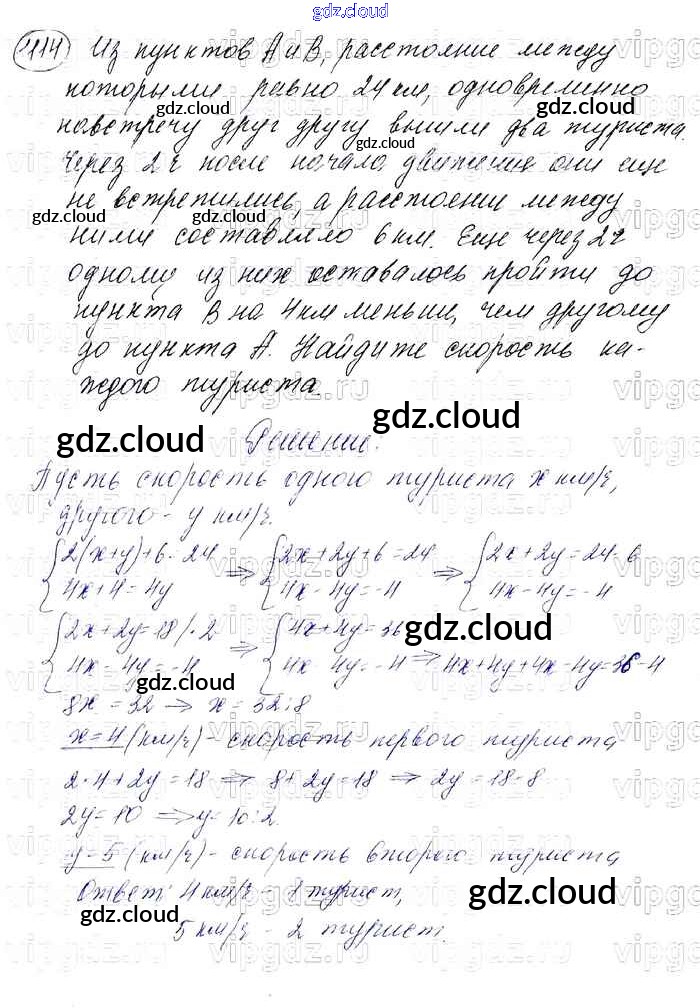 gdz.cloud
1114 Из пунктов А и В, расстояние между
которыми равно 24 км, одновременно
навстречу друг другу вышли два туриста.
Через 2ч после начала движения они еще
не встретились, а расстоянии между
ними составляло 6 км. Еще через 2ч
одному из них оставалось пройти до
пункта В на 4 км меньше, чем другому
до пункта А. Найдите скорость ка-
ждого туриста.
Решение.
Пусть скорость одного туриста x км/ч,
другого - y км/ч.
{2(x+y)+6=24 ⇒ {2x+2y+6=24 ⇒ {2x+2y=24-6
{4x+4=4y {4x-4y=-4 {4x-4y=-4
{2x+2y=18 /·2 ⇒ {4x+4y=36
{4x-4y=-4 {4x-4y=-4 ⇒ 4x+4y+4x-4y=36-4
8x=32 → x=32:8
x=4 (км/ч) - скорость первого туриста
2·4+2y=18 ⇒ 8+2y=18 ⇒ 2y=18-8
2y=10 ⇒ y=10:2
y=5 (км/ч) - скорость второго туриста
Ответ: 4 км/ч - 1 турист,
5 км/ч - 2 турист.